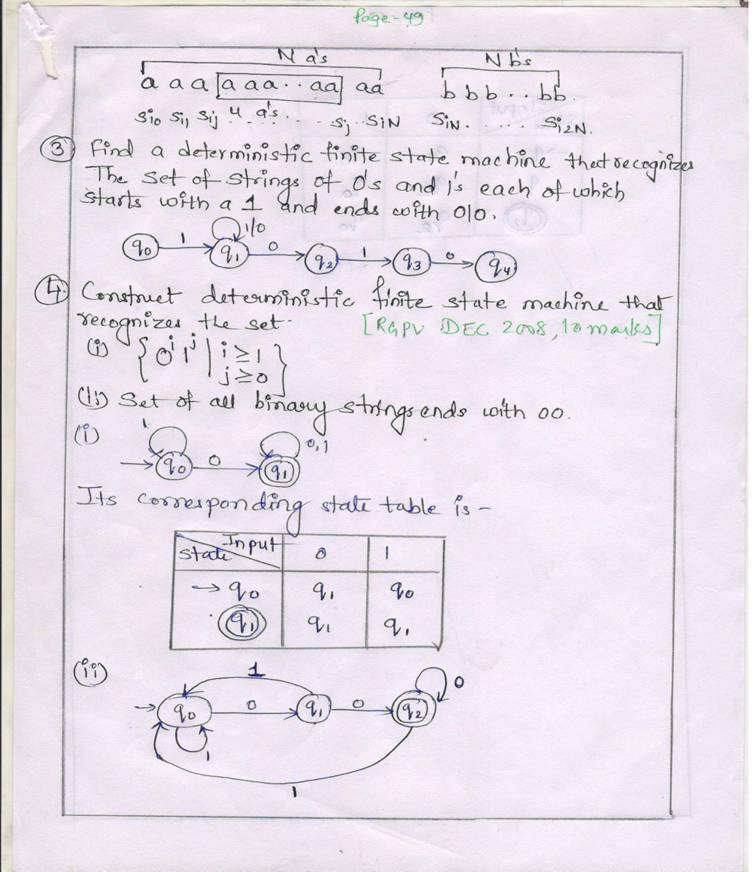 Page-49
N a's N b's
a a a a aa..aa aa b b b..bb.
Sio Si1 Sij 4 a's.... Sj. SiN SiN..... Si2N.
③ Find a deterministic finite state machine that recognizes
The set of strings of 0's and 1's each of which
starts with a 1 and ends with 010.
1/0
q0 1 q1 0 q2 1 q3 0 q4
④ Construct deterministic finite state machine that
recognizes the set.
[RGPV DEC 2008, 10 marks]
(i) { 0^i 1^j | i ≥ 1
j ≥ 0 }
(ii) Set of all binary strings ends with 00.
(i) 1 0,1
→ q0 0 q1
Its corresponding state table is -
State Input 0 1
→ q0 q1 q0
q1 q1 q1
(ii) 1 0
→ q0 0 q1 0 q2
1
1